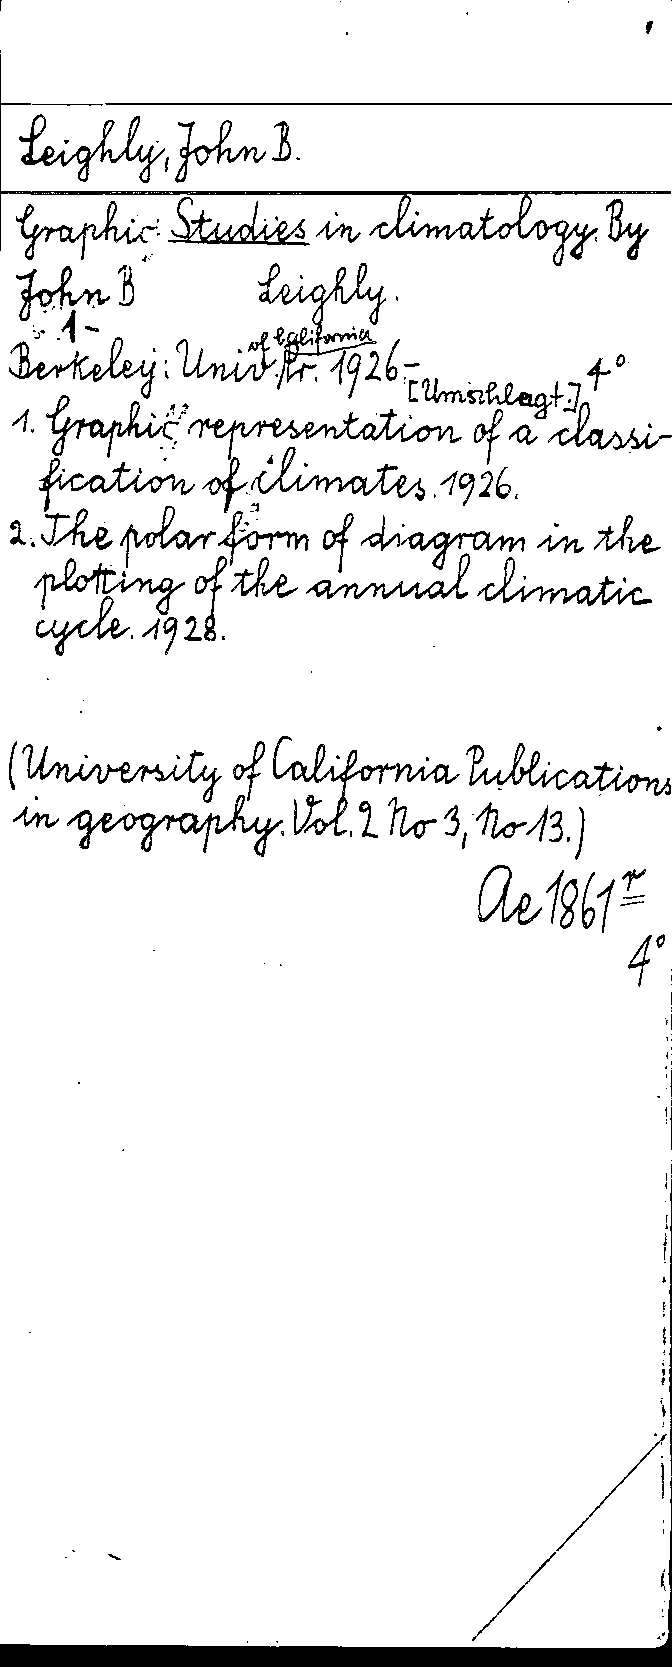 Leighly, John B.
Graphic Studies in climatology. By
John B Leighly.
1-
of California
Berkeley: Univ. Pr. 1926- 4°
[Umschlagt.]
1. Graphic representation of a classi-
fication of climates. 1926.
2. The polar form of diagram in the
plotting of the annual climatic
cycle. 1928.
(University of California Publications
in geography. Vol. 2 No 3, No 13.)
Ae 1861
4°